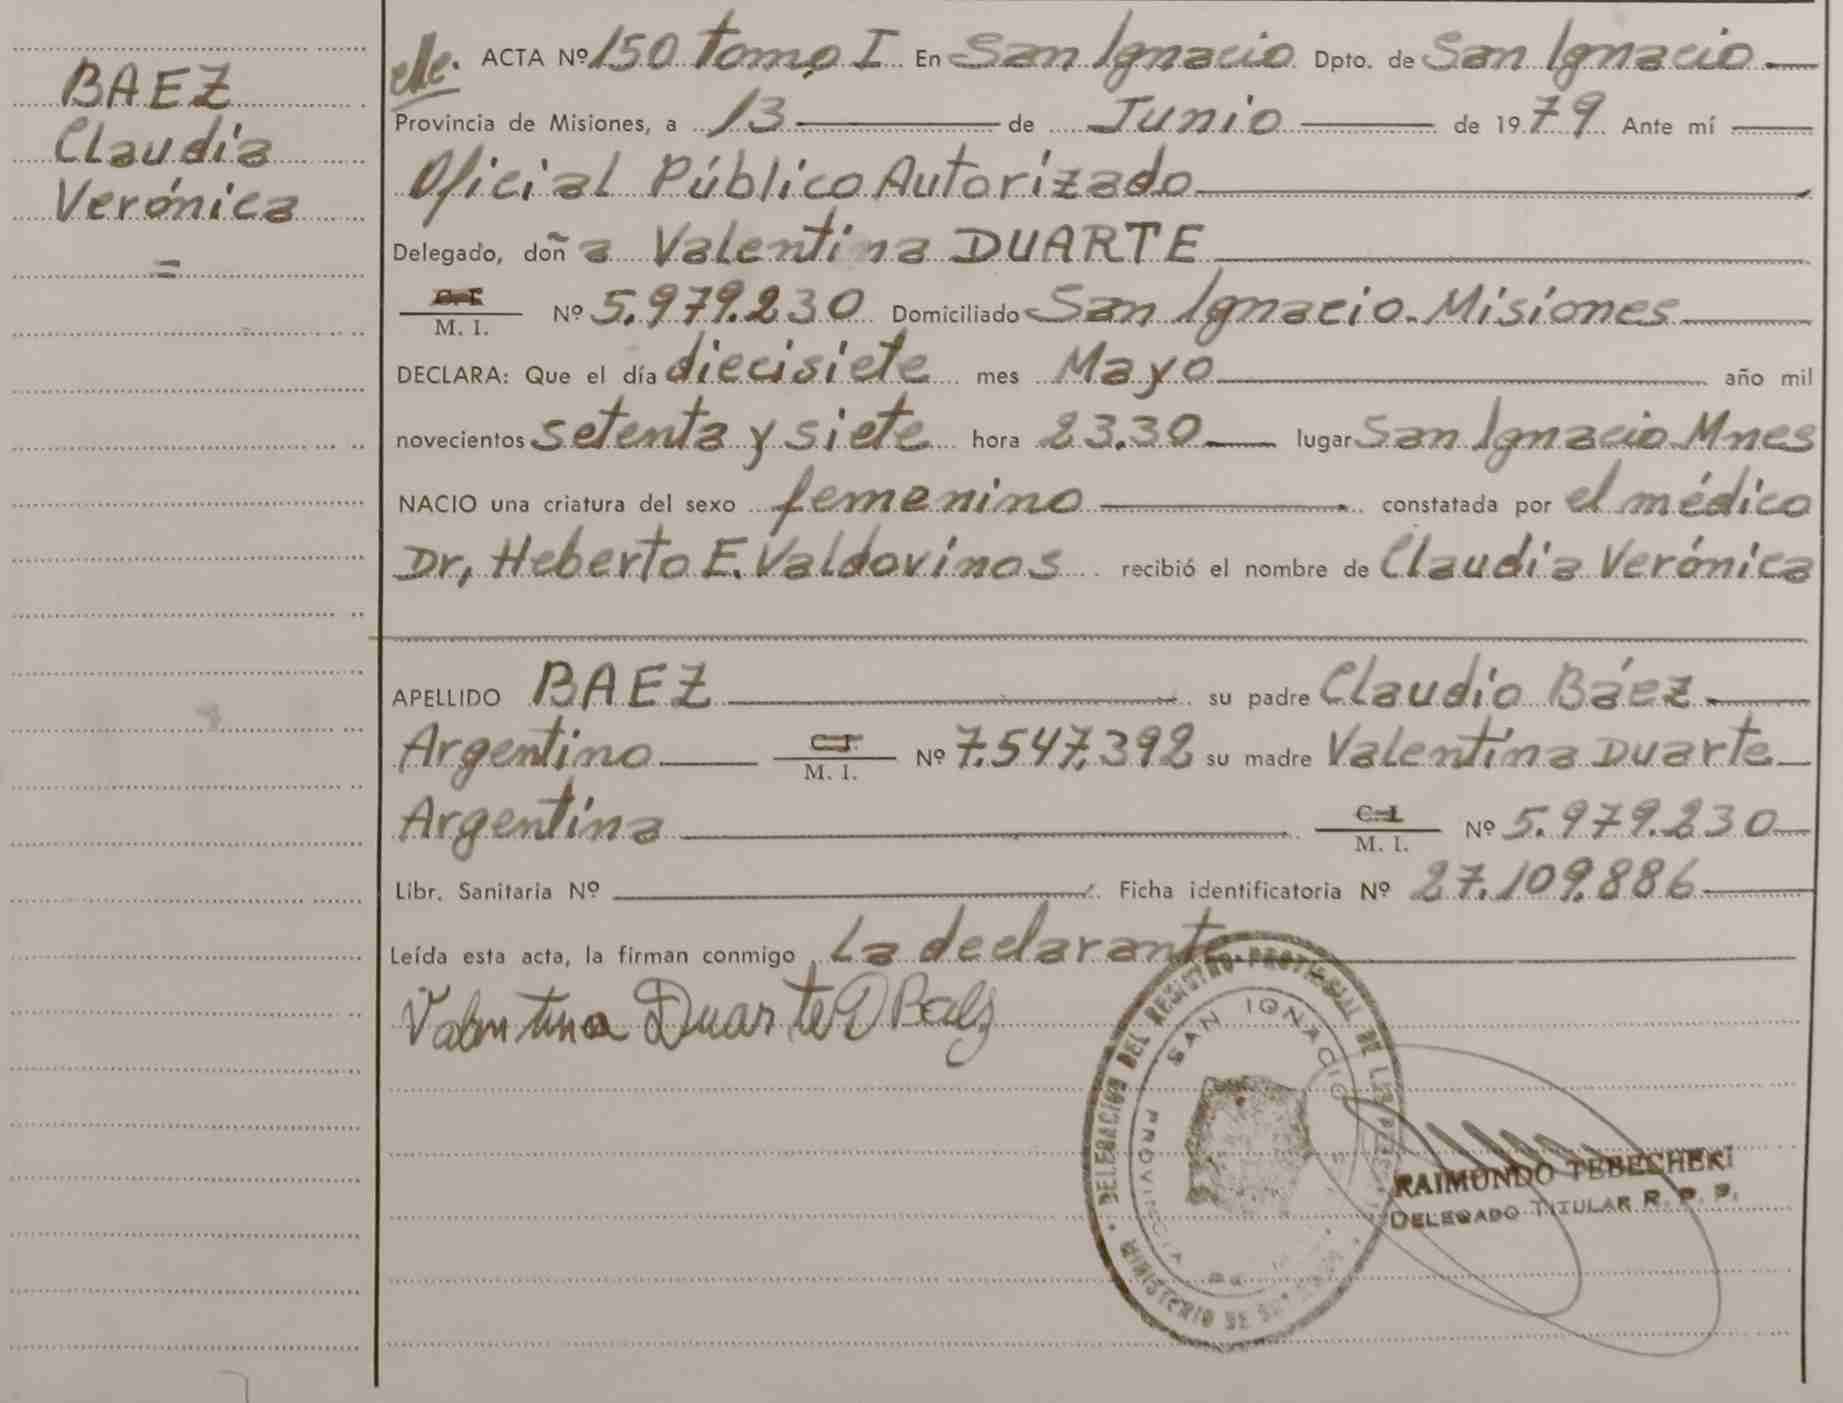 BAEZ
Claudia
Verónica
=
ACTA Nº 150 tomo I En San Ignacio Dpto. de San Ignacio
Provincia de Misiones, a 13 de Junio de 1979 Ante mí
Oficial Público Autorizado
Delegado, doña Valentina DUARTE
C.I.
M. I. Nº 5.979.230 Domiciliado San Ignacio. Misiones
DECLARA: Que el día diecisiete mes Mayo año mil
novecientos setenta y siete hora 23.30 lugar San Ignacio Mnes
NACIO una criatura del sexo femenino constatada por el médico
Dr, Heberto E. Valdovinos recibió el nombre de Claudia Verónica
APELLIDO BAEZ su padre Claudio Báez
Argentino C.I. M. I. Nº 7.547.392 su madre Valentina Duarte
Argentina C.I. M. I. Nº 5.979.230
Libr. Sanitaria Nº Ficha identificatoria Nº 27.109.886
Leída esta acta, la firman conmigo, La declarante
Valentina Duarte D Baez
DELEGACION DEL REGISTRO PROVINCIAL DE LAS
SAN IGNACIO
PROVINCIA DE
RAIMUNDO TEBECHERI
DELEGADO TITULAR R. P. P.